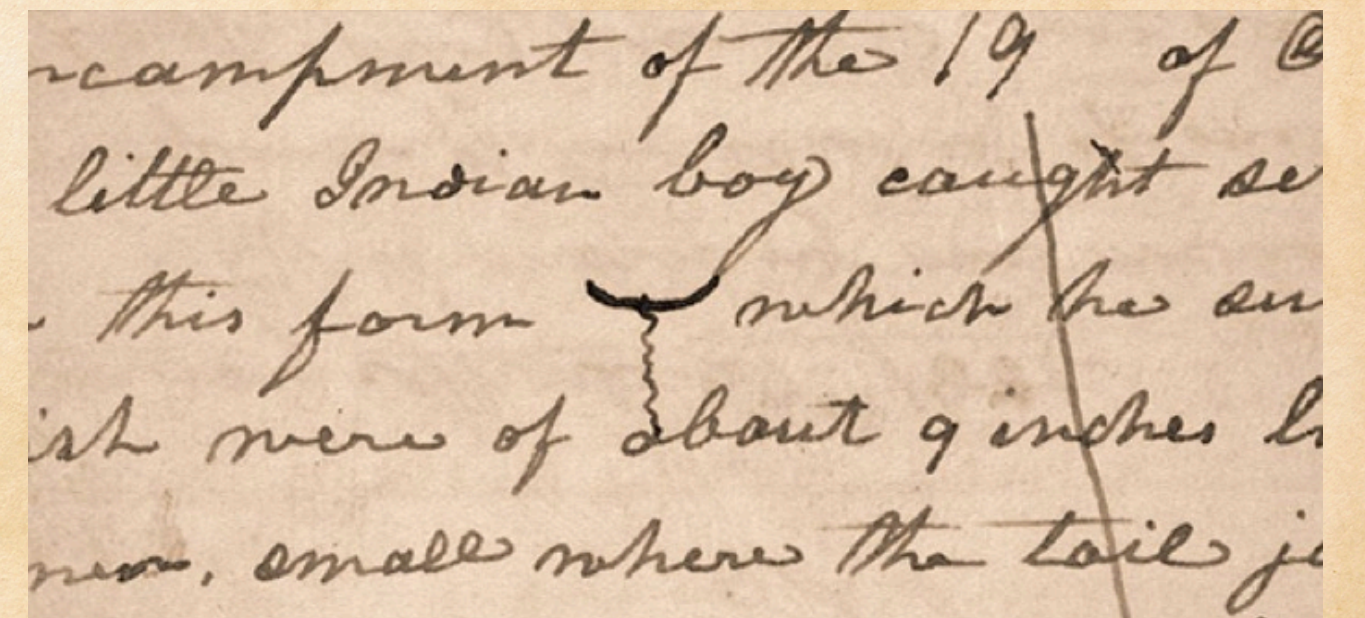 ncampment of the 19 of
little Indian boy caught se
this form which he su
ish were of about 9 inches
small where the tail